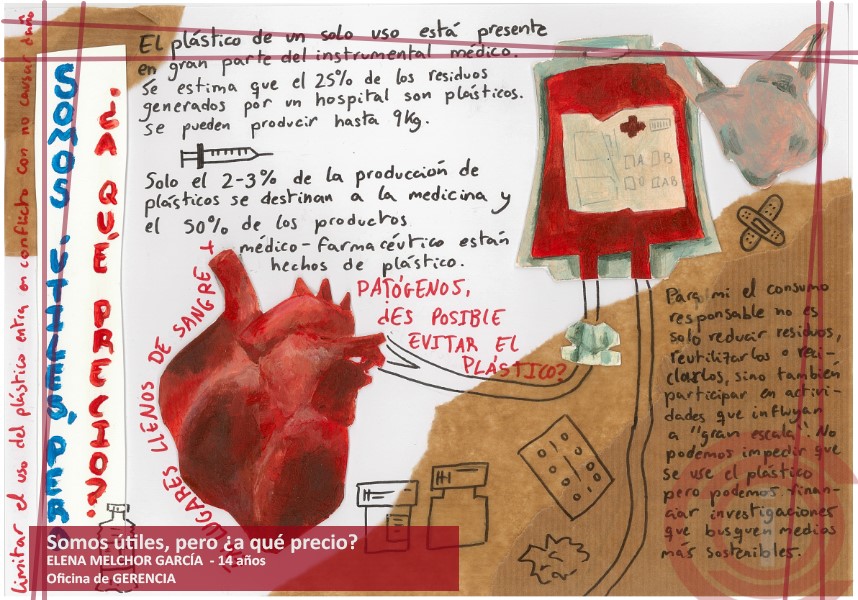 Limitar el uso del plástico entra en conflicto con no causar daño
SOMOS ÚTILES, PERO
¿A QUÉ PRECIO?
El plástico de un solo uso está presente
en gran parte del instrumental médico.
Se estima que el 25% de los residuos
generados por un hospital son plásticos.
Se pueden producir hasta 9kg.
Solo el 2-3% de la producción de
plásticos se destinan a la medicina y
el 50% de los productos
médico-farmacéutico están
hechos de plástico.
LUGARES LLENOS DE SANGRE +
PATÓGENOS,
¿ES POSIBLE
EVITAR EL
PLÁSTICO?
A B
O AB
Para mi el consumo
responsable no es
solo reducir residuos,
reutilizarlos o reci-
clarlos, sino también
participar en activi-
dades que influyan
a "gran escala". No
podemos impedir que
se use el plástico
pero podemos finan-
ciar investigaciones
que busquen medios
más sostenibles.
Somos útiles, pero ¿a qué precio?
ELENA MELCHOR GARCÍA - 14 años
Oficina de GERENCIA